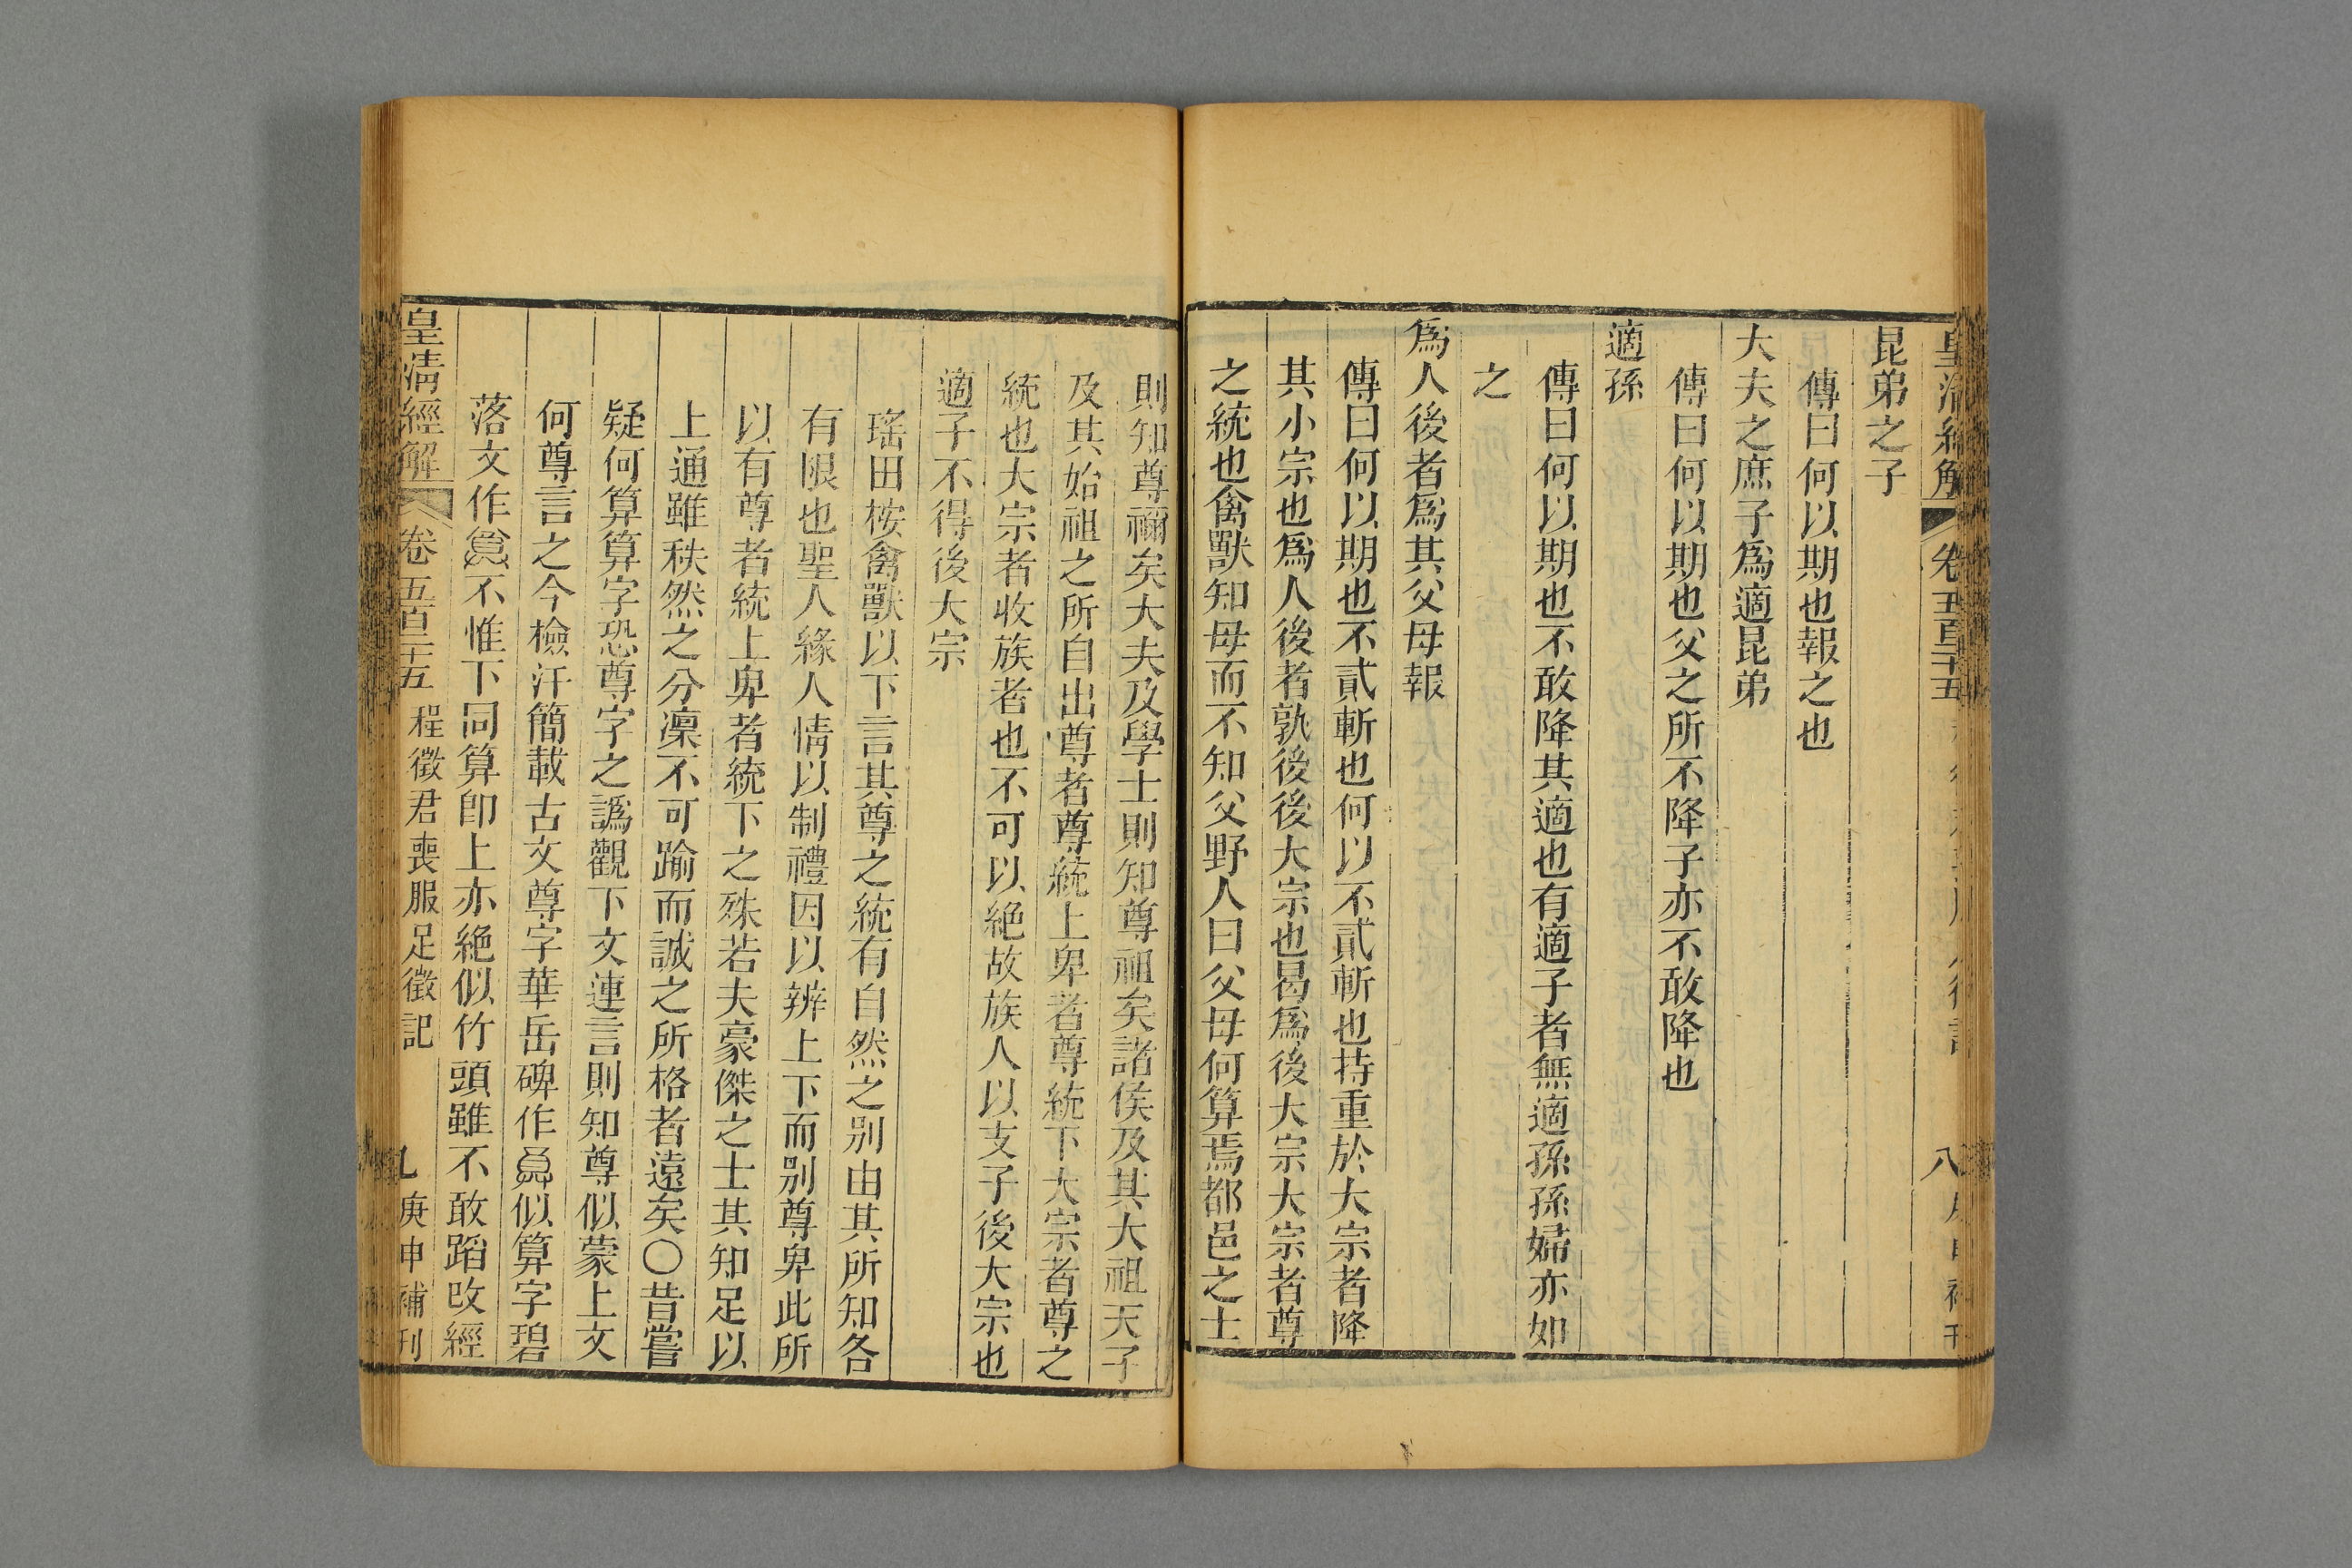 皇清經解 卷五百二十五 八
昆弟之子
傳曰何以期也報之也
大夫之庶子爲適昆弟
傳曰何以期也父之所不降子亦不敢降也
適孫
傳曰何以期也不敢降其適也有適子者無適孫孫婦亦如
之
爲人後者爲其父母報
傳曰何以期也不貳斬也何以不貳斬也持重於大宗者降
其小宗也爲人後者孰後後大宗也曷爲後大宗大宗者尊
之統也禽獸知母而不知父野人曰父母何算焉都邑之士
則知尊禰矣大夫及學士則知尊祖矣諸侯及其大祖天子
及其始祖之所自出尊者尊統上卑者尊統下大宗者尊之
統也大宗者收族者也不可以絕故族人以支子後大宗也
適子不得後大宗
瑤田桉禽獸以下言其尊之統有自然之别由其所知各
有限也聖人緣人情以制禮因以辨上下而别尊卑此所
以有尊者統上卑者統下之殊若夫豪傑之士其知足以
上通雖秩然之分凜不可踰而誠之所格者遠矣○昔嘗
疑何算算字恐尊字之譌觀下文連言則知尊似蒙上文
何尊言之今檢汗簡載古文尊字華岳碑作似算字碧
落文作不惟下同算卽上亦絕似竹頭雖不敢蹈改經
皇清經解 卷五百二十五 程徵君喪服足徵記 庚申補刊